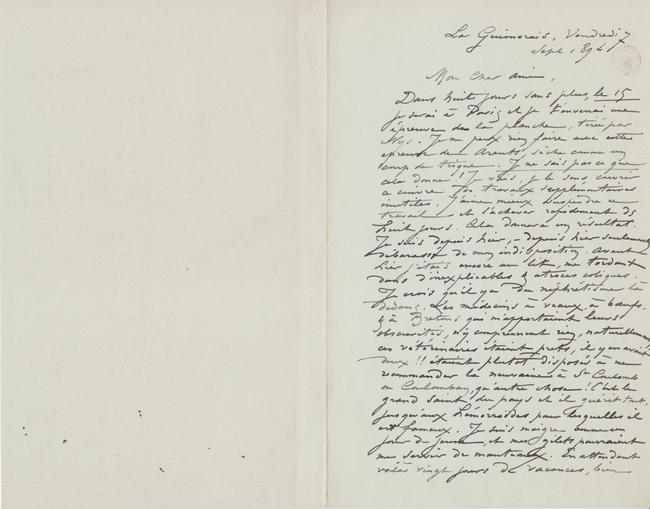 La Guimorais, Vendredi 7
Sept 1894
Mon cher ami,
Dans huit jours sans plus, le 15
je serai à Paris et je t'enverrai une
épreuve de la planche, tirée par
Nys. Je ne peux rien faire avec cette
épreuve de Arents, sèche comme un
coup de trique. Je ne sais pas ce que
cela donne! Je vais, je le sens couvrir
ce cuivre de travaux supplémentaires
inutiles. J'aime mieux suspendre ce
travail et l'achever rapidement ds
huit jours. Cela donnera un résultat.
Je suis depuis hier, – depuis hier seulement
débarassé de mon indisposition. Avant
hier j'étais encore au lit, me tordant
dans d'inexplicables & atroces coliques.
Je crois qu'il y a du néphrétisme là
dedans. Les médecins à veaux, à boeufs,
& à Bretons qui m'apportaient leurs
obscurités, n'y comprennent rien, naturellement
ces vétérinaires étaient prets, il y en avait
deux!! étaient plutot disposés à me
recommander la neuvaine à St Coulomb
ou Coulomban, qu'autre chose! C'est le
grand saint du pays et il guérit tout,
jusqu'aux hémorroïdes pour lesquelles il
est fameux. Je suis maigre comme un
jour de jeune, et mes gilets pourraient
me servir de manteaux. En attendant
voilà vingt jours de vacances, bien